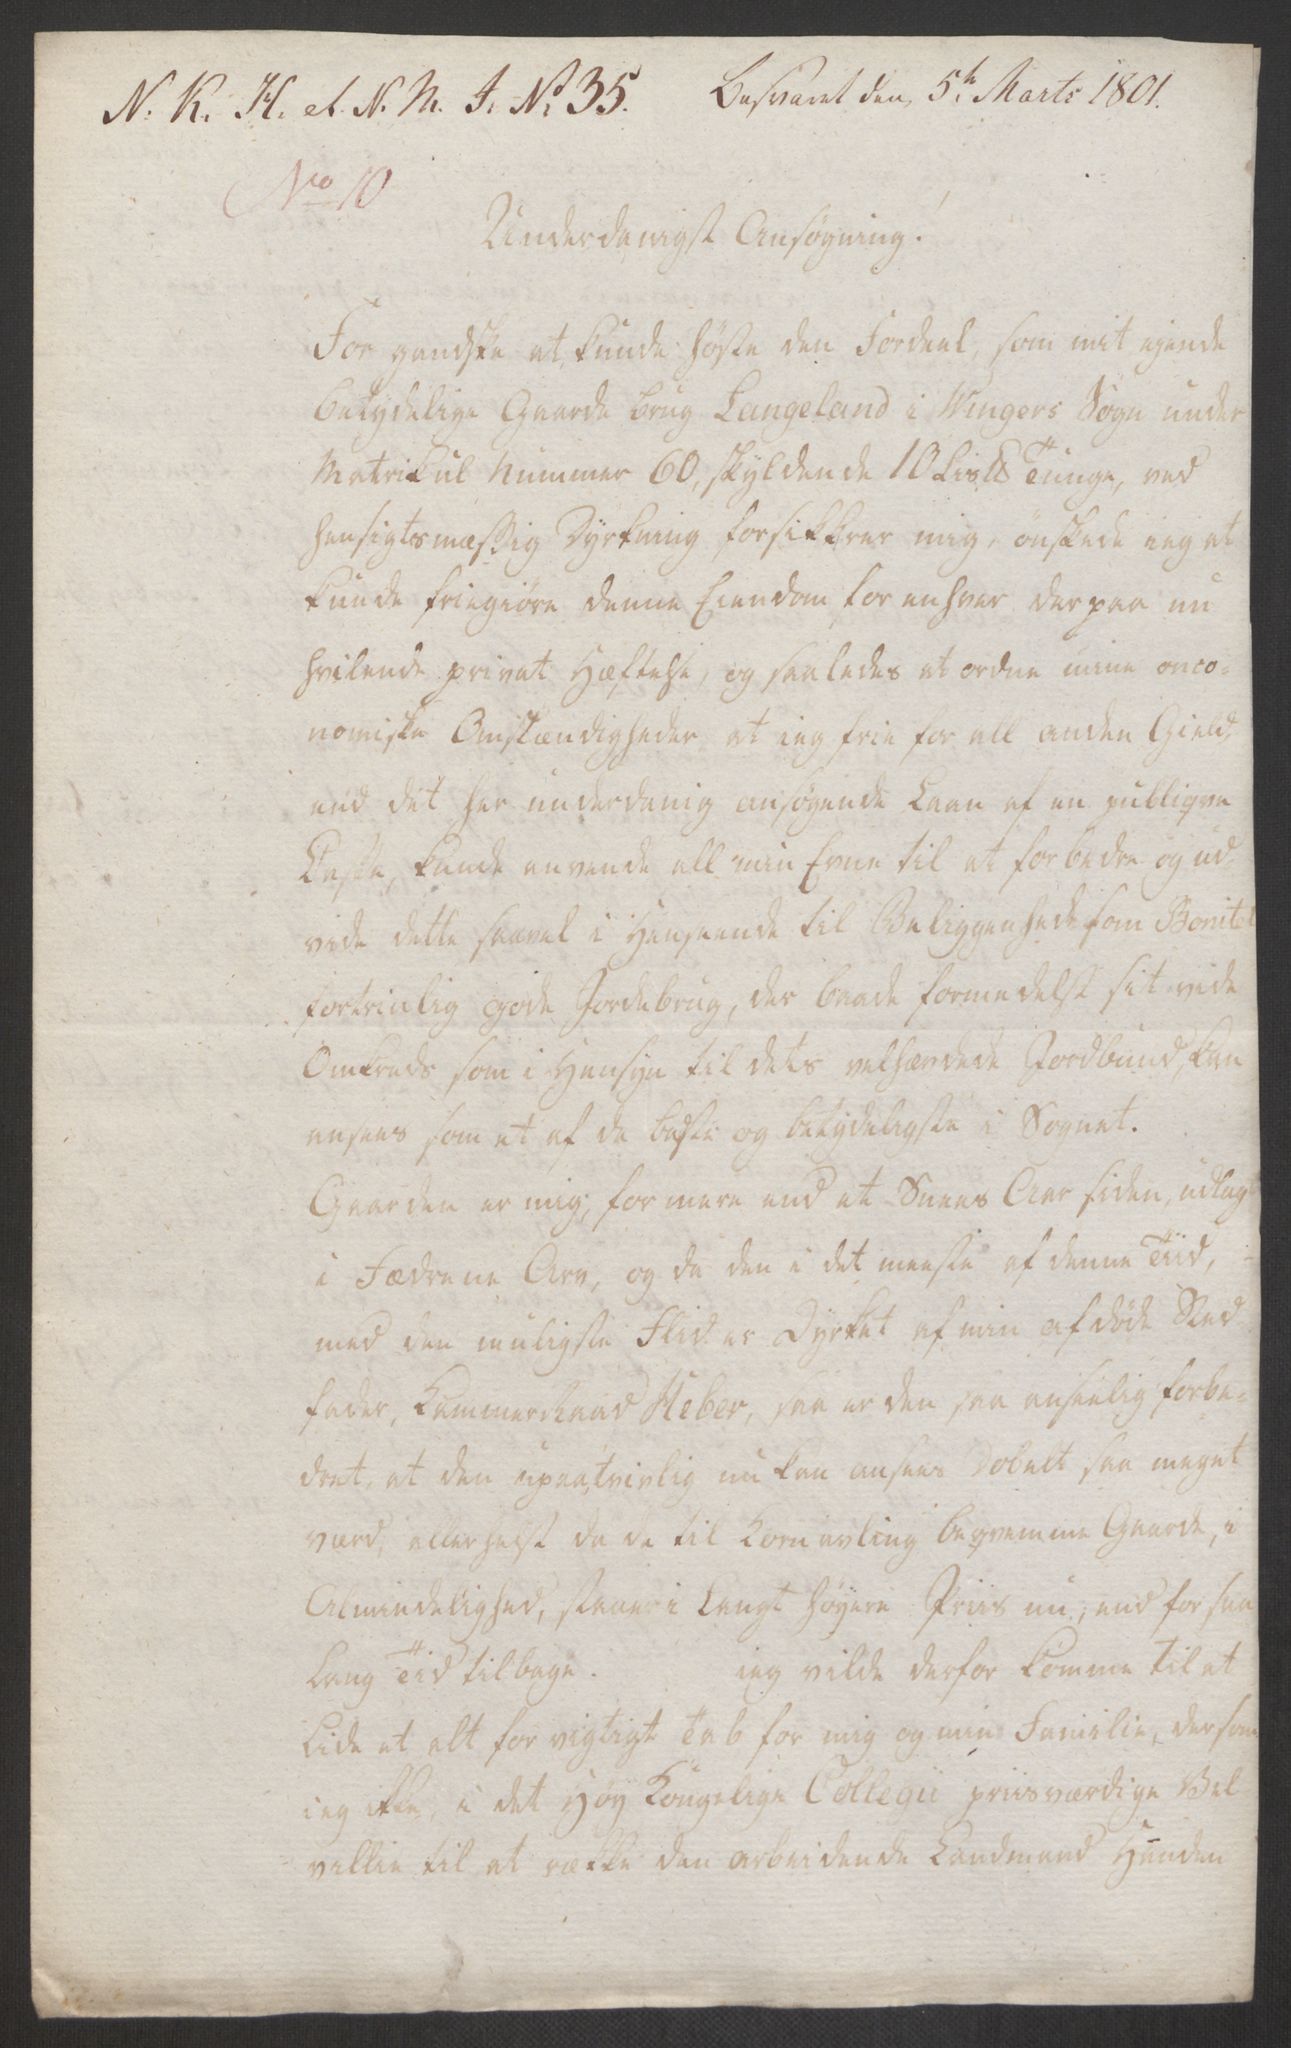 N. K. H. et. N. M. J. No 35. Besvaret den 5te Marts 1801.
No 10
Underdanigst Ansøgning!
For gandske at kunde høste den Fordeel, som mit ejende
betydelige Gaarde brug Langeland i Wingers Sogn under
Matrikul Nummer 60, skyldende 10 Lis℔ Tunge, ved
hensigtsmæssig Dyrkning forsikkrer mig, önskede ieg at
kunde friegiöre denne Eiendom for enhver derpaa nu
hvilende privat Hæftelse, og saaledes at ordne mine oeco-
nomiske Omstændigheder at ieg frie for all anden Gield,
end det her underdanig ansøgende Laan af en publiqve
Casse, kunde anvende all min Evne til at forbedre og ud-
vide dette saavel i Henseende til Beliggenhed som Bonitet
fortrinlig gode Jordebrug, der baade formedelst sit vide
Omkreds som i Hensyn til dets velhævdede Jordbund, kan
ansees som et af de bedste og betydeligste i Sognet.
Gaarden er mig, for mere end et Snees Aar siden, udlagt
i Fædrene Arv, og da den i det meeste af denne Tiid,
med den muligste Flid er Dyrket af min afdöde Sted
fader, Kammerraad Heber, saa er den saa anseelig forbe-
dret, at den upaatvivlig nu kan ansees Dobelt saa meget
værd, allerhelst da de til Kornavling beqvemme Gaarde, i
Almindelighed, staaer i Langt høyere Priis nu, end for saa
Lang Tid tilbage. ieg vilde derfor komme til at
Lide et alt for vigtigt Tab for mig og min Familie, dersom
ieg ikke, i det Høy Kongelige Collegii priisværdige Vel
villie til at række den arbeidende Landmand Haanden